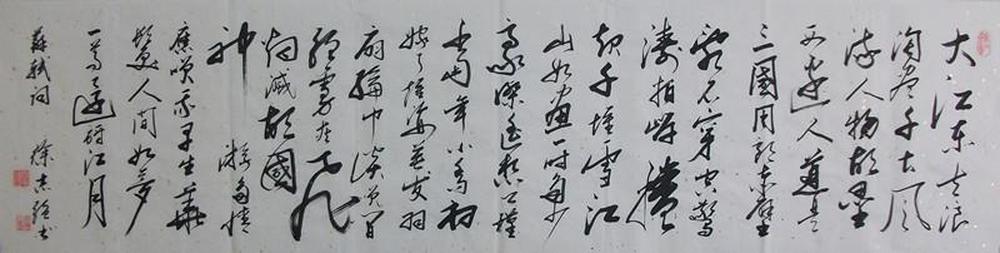 大江东去浪
淘尽千古风
流人物故垒
西边人道是
三國周郎赤壁
乱石穿空惊
涛拍岸捲
起千堆雪江
山如畫一时多少
豪傑遥想公瑾
当年小乔初
嫁了雄姿英发羽
扇纶巾谈笑间
强虏灰飞
烟滅故國
神游多情
应笑我早生華
髮人间如梦
一尊還酹江月
蘇軾词 徐志强书